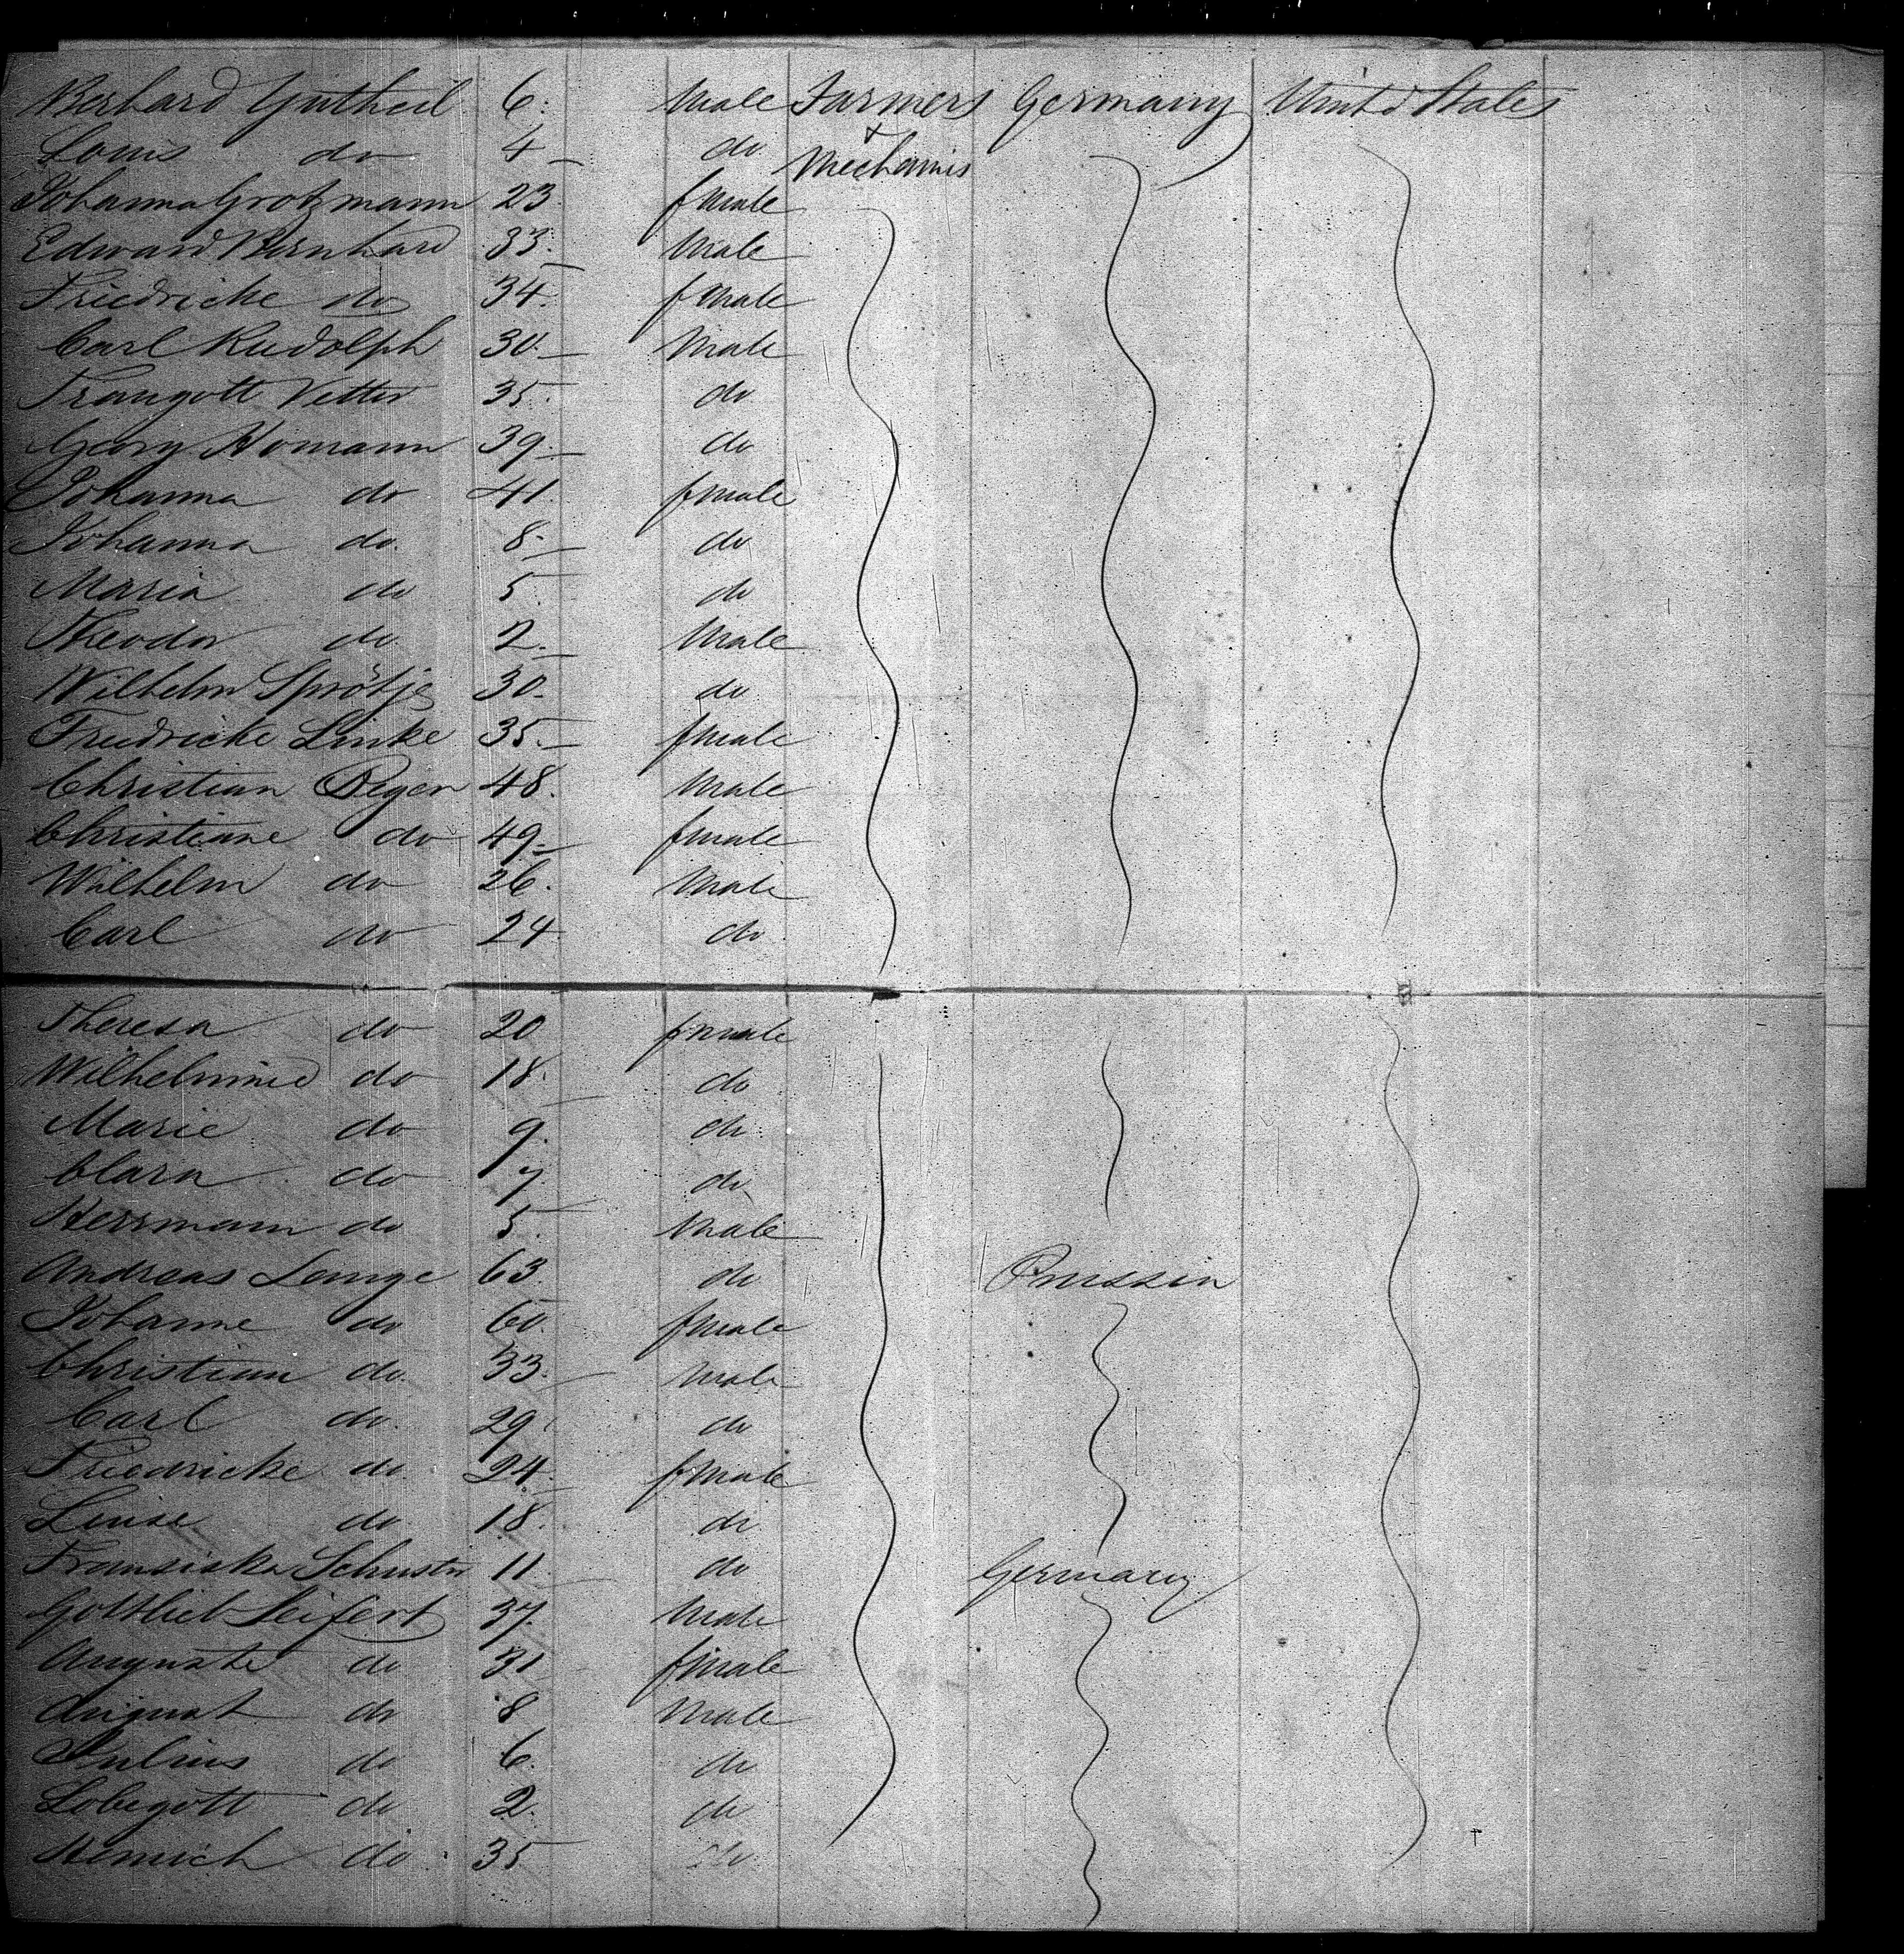 Berhard Gutheil 6. Male Farmers Germany United States
Louis do 4 do &
Mechanis
Johanna Grotzmann 23 fmale
Edward Bernhard 33. Male
Friedricke do 34. fmale
Carl Rudolph 30. Male
Traugott Vetter 35. do
Georg Homann 39 do
Johanna do 41. fmale
Johanna do. 8. do
Maria do 5. do
Theodor do. 2. Male
Wilhelm Sprötje 30. do
Friedricke Linke 35. fmale
Christian Peger 48. Male
Christiane do 49 fmale
Wilhelm do 26. Male
Carl do 24 do
Theresa do 20 fmale
Wilhelmine do 18. do
Marie do 9. do
Clara do 7. do
Herrmann do 5. Male
Andreas Lange 63. do Prussia
Johanne do 60. fmale
Christian do. 33. Male
Carl do. 29. do
Friedricke do. 24. fmale
Louise do. 18. do
Fransiska Schuster 11. do Germany
Gottlieb Seifert 37. Male
Auguste do 31 fmale
August do 8 Male
Julius do 6. do
Lobegott do 2. do
Heinrich do. 35 do